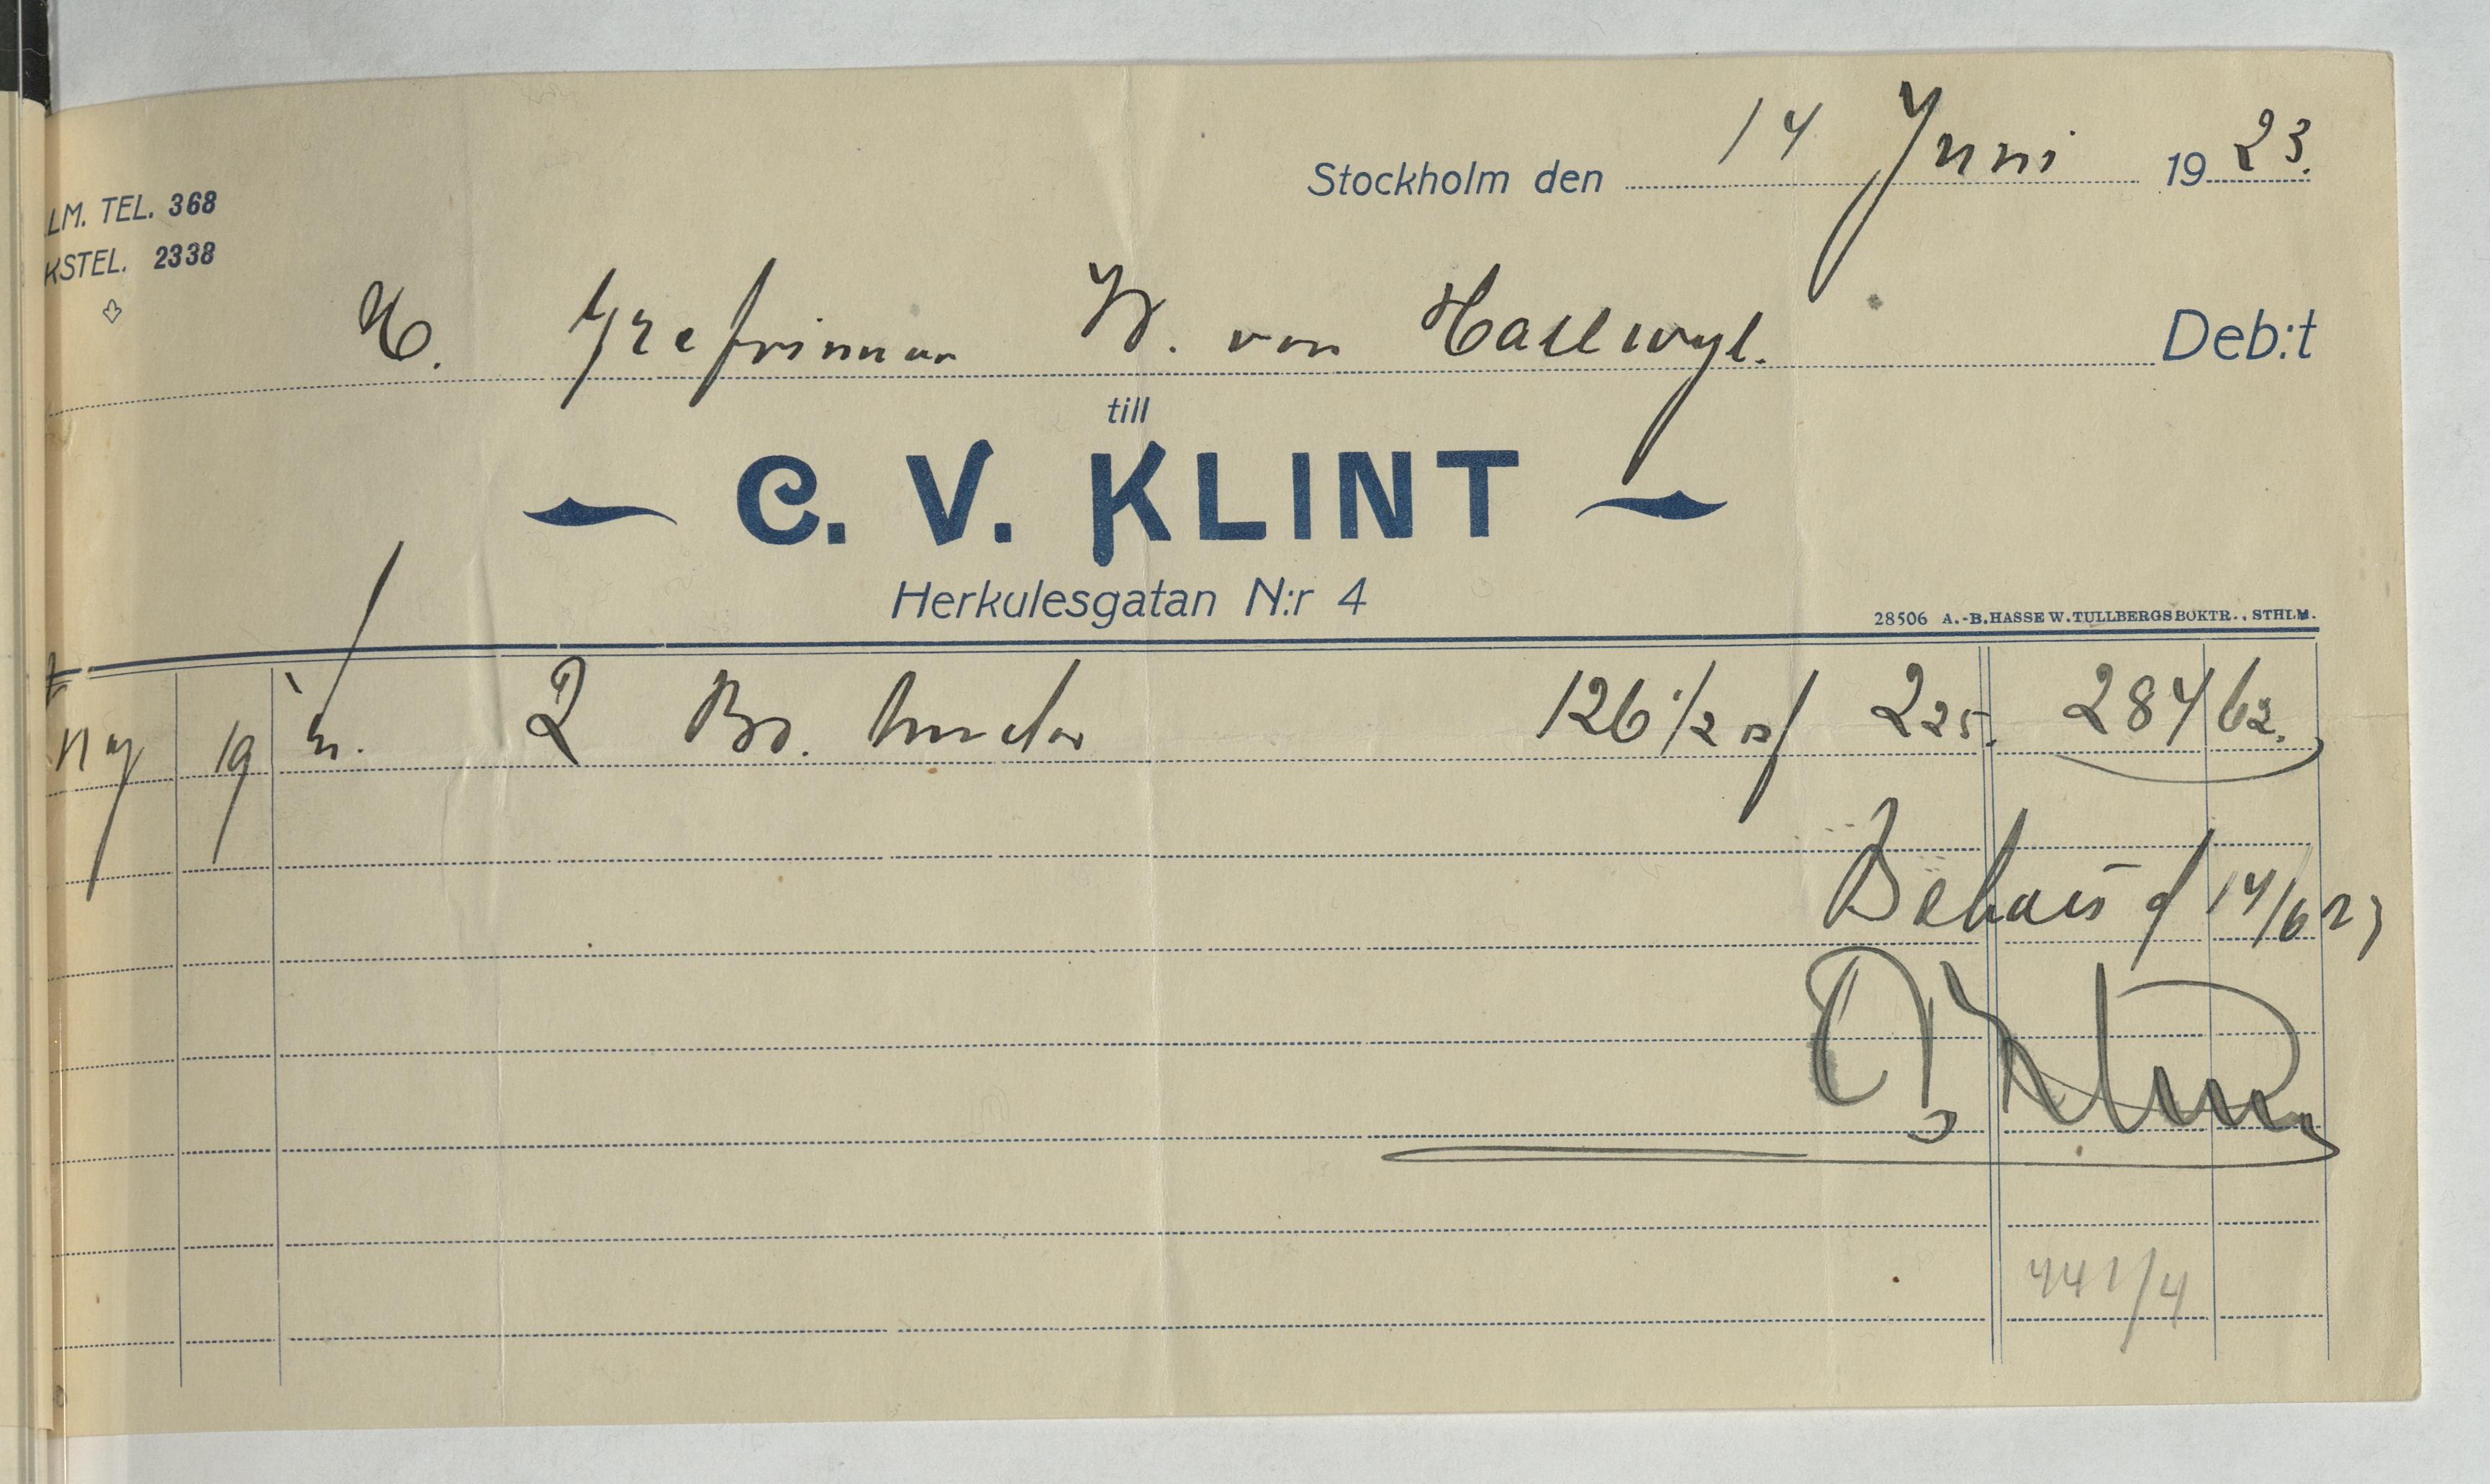 Stockholm den 14 Juni 1923.
LM. TEL. 368
KSTEL. 2338
H. Grefvinnan W. von Hallwyl. Deb:t
till
C. V. KLINT
Herkulesgatan N:r 4
28506 A.-B. HASSE W. TULLBERGS BOKTR., STHLM.
19 2 Br. 126 1/2 225. 284 62.
14/6 23
441/4